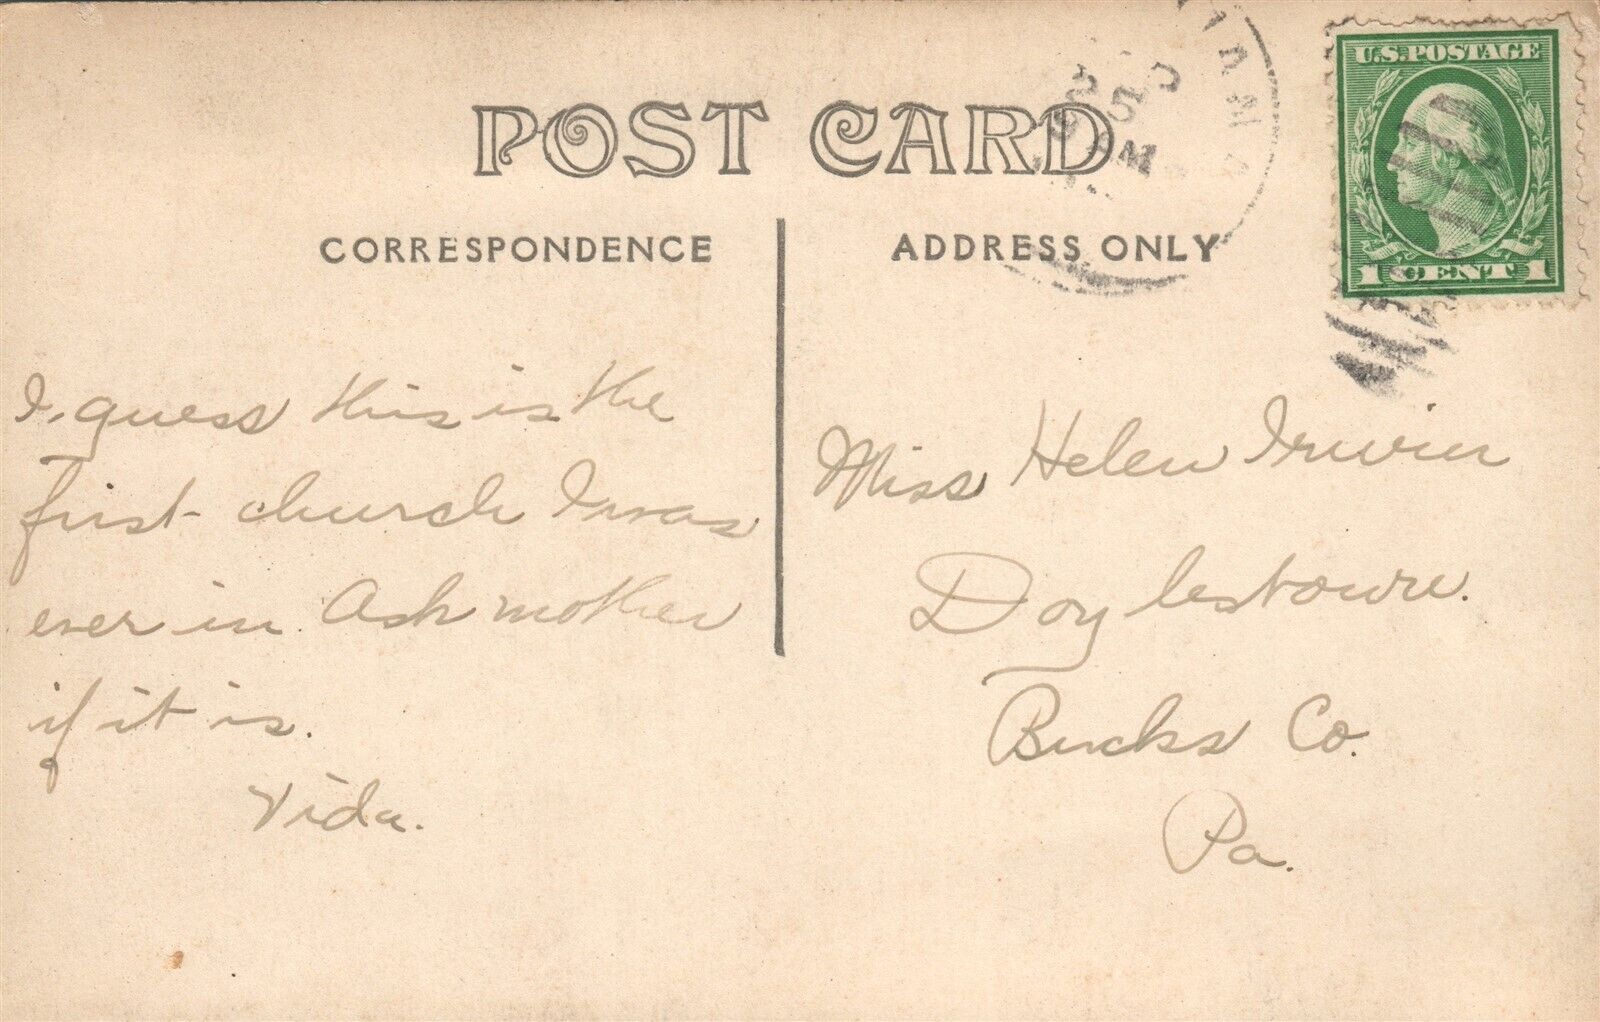 U.S. POSTAGE
1 CENT 1
POST CARD
CORRESPONDENCE
ADDRESS ONLY
25
AM
I guess this is the
first church I was
ever in. Ask mother
if it is.
Vida.
Miss Helen Irwin
Doylestown.
Bucks Co.
Pa.